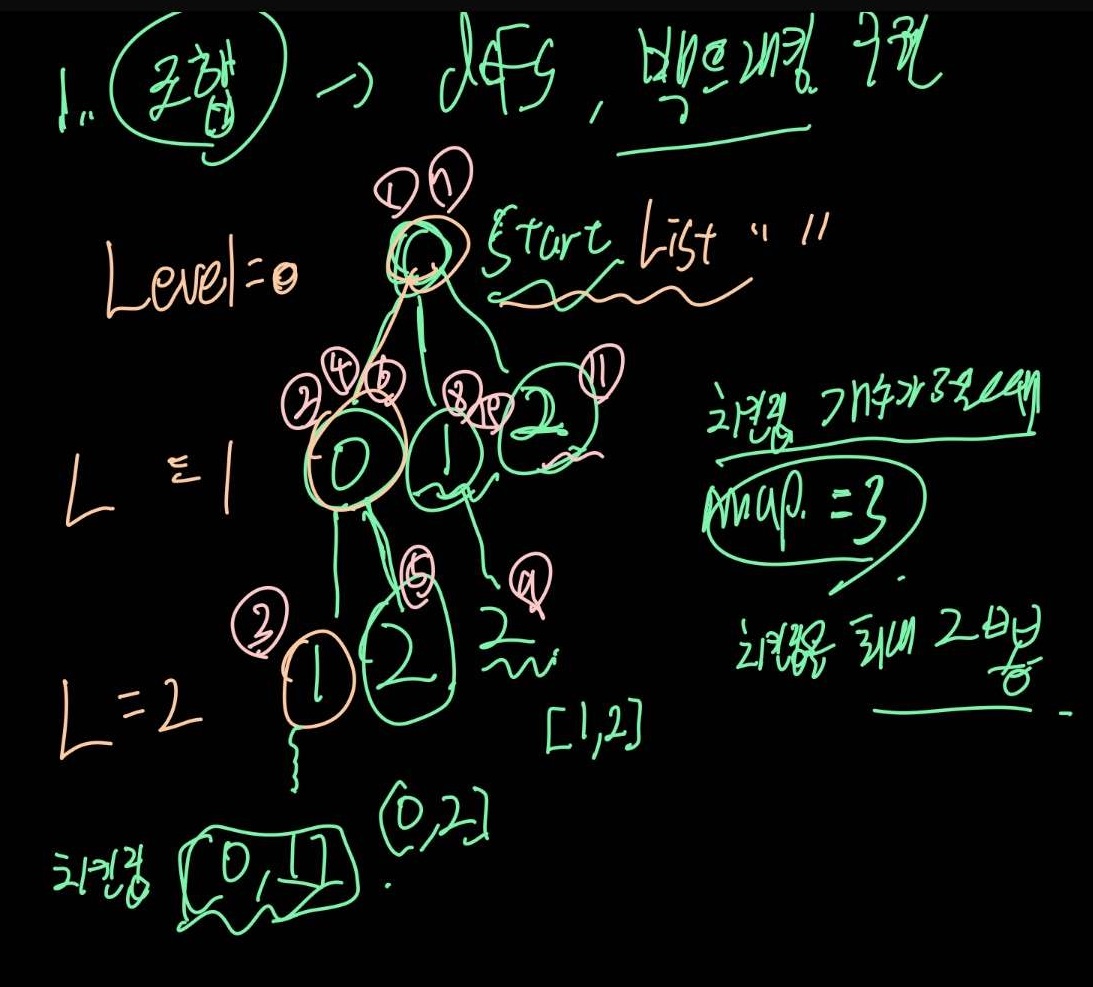 1. 조합 → dfs, 백트래킹 구현
① ⑦
Level=0 Start List " "
② ④ ⑥ ⑧ ⑩ ⑪
L = 1 0 1 2
치킨집 개수가 3일때
map. = 3
③ ⑤ ⑨
L=2 1 2 2
치킨집은 최대 2
[1,2]
[0,2]
치킨집 [0,1]